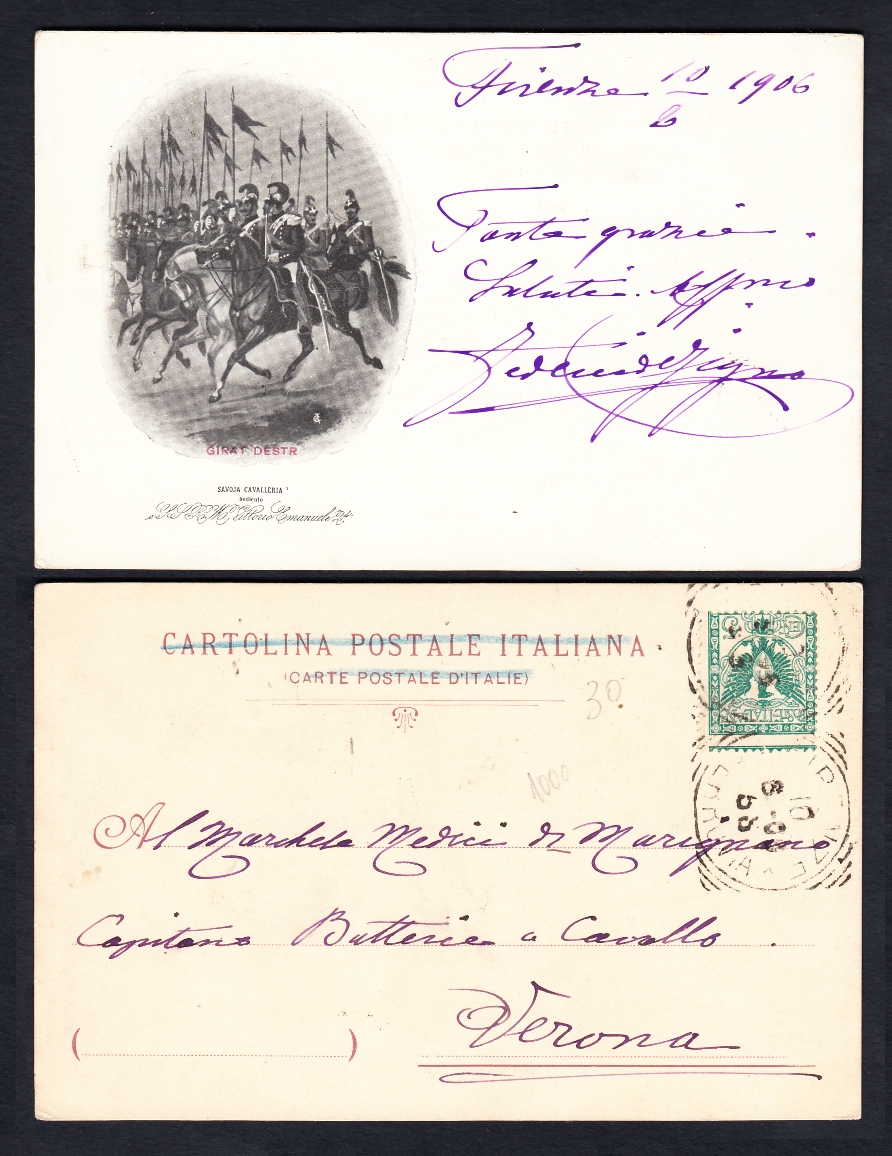 Firenze 10/2 1906
Tante grazie.
Saluti. Affmo
GIRAT DESTR
SAVOJA CAVALLERIA
Dedicato
a S. A. R. Vittorio Emanuele
CARTOLINA POSTALE ITALIANA
(CARTE POSTALE D'ITALIE)
30
1000
Al Marchese Medici di Marignano
Capitano Batterie a Cavallo.
Verona